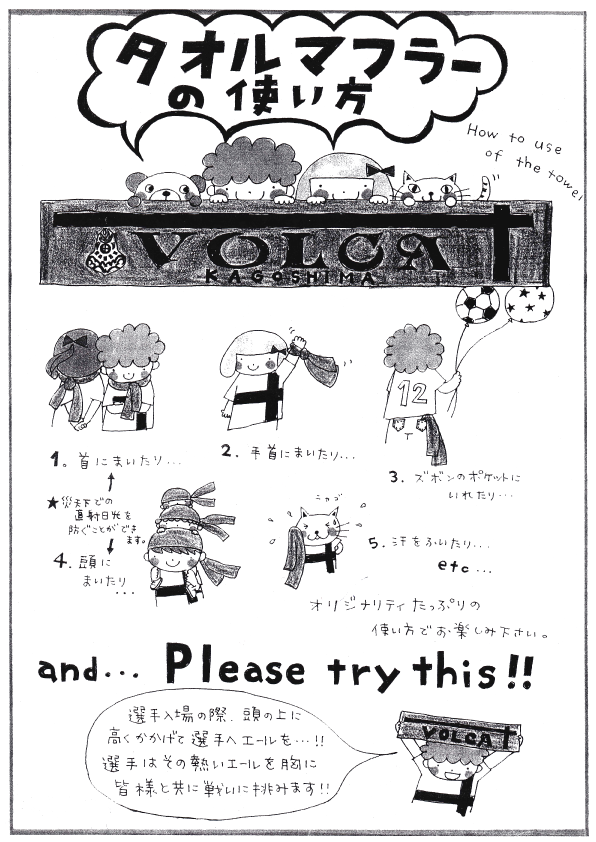 タオルマフラー
の使い方
How to use
of the towel
VOLCA
KAGOSHIMA
12
1. 首にまいたり...
2. 手首にまいたり...
3. ズボンのポケットに
いれたり...
★炎天下での
直射日光を
防ぐことができ
ます。
4. 頭に
まいたり
...
ニャゴ
5. 汗をふいたり...
etc...
オリジナリティたっぷりの
使い方でお楽しみ下さい。
and... Please try this!!
選手入場の際、頭の上に
高くかかげて選手へエールを…!!
選手はその熱いエールを胸に
皆様と共に戦いに挑みます!!
VOLCA